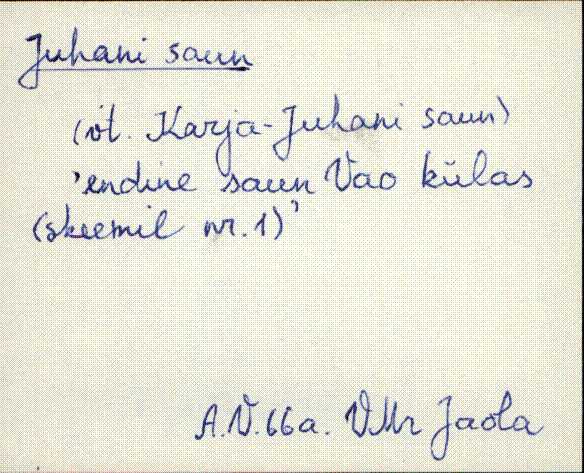 Juhani saun
(vt. Karja-Juhani saun)
'endine saun Vao külas
(skeemil nr. 1)'
A.V. 66a. VMr Jaola